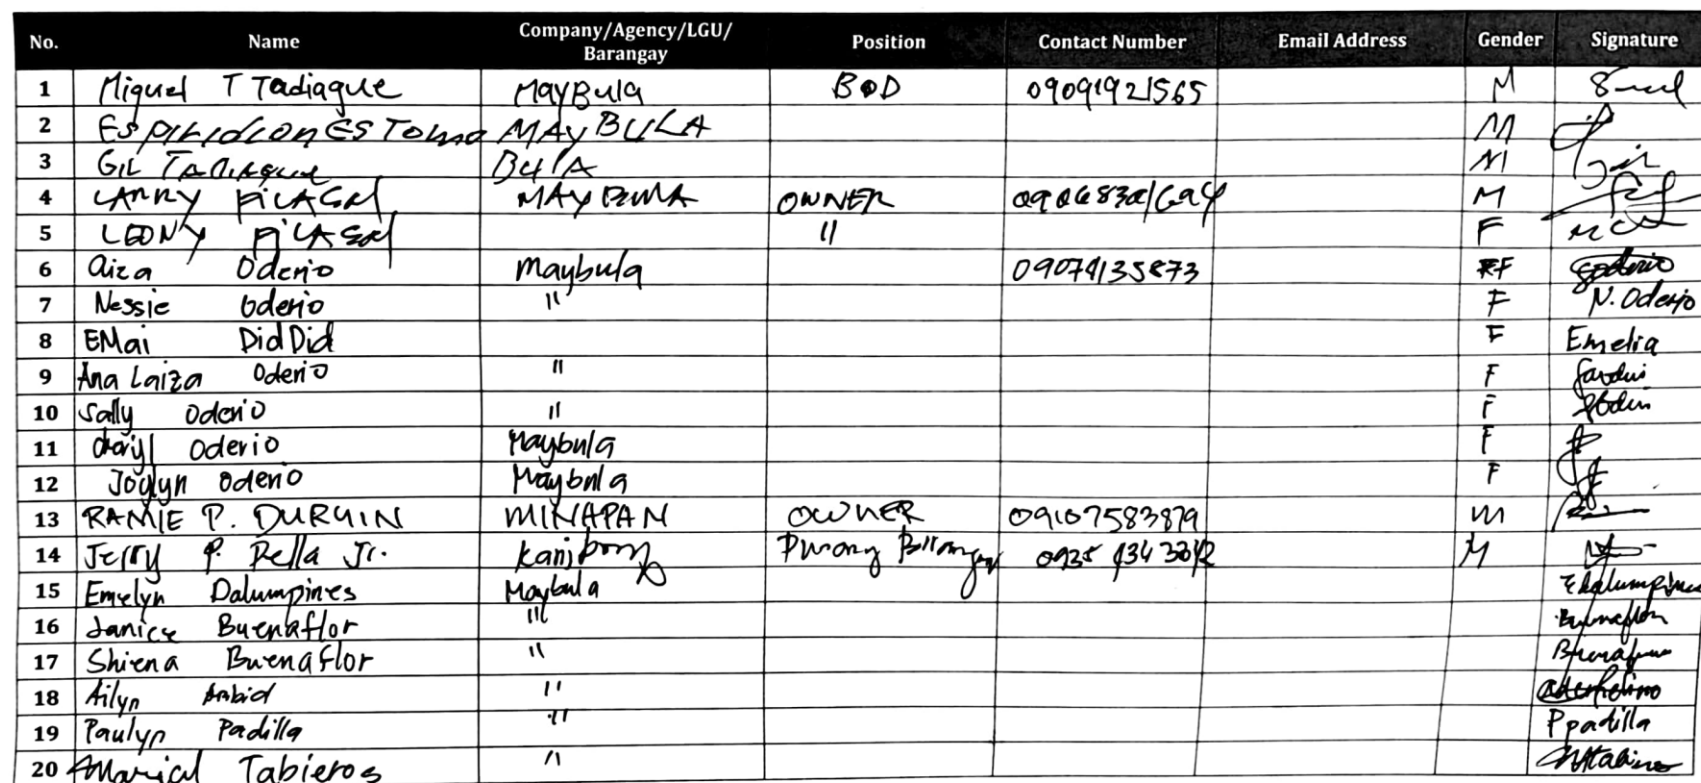 No. Name Company/Agency/LGU/Barangay Position Contact Number Email Address Gender Signature
1 Miguel T Tadiague MayBula BOD 09091921565 M
2 ESPIRIDION ESTOMO MAY BULA M
3 GIL TADIAGUE BULA M Gil
4 LARRY PILAGAL MAYBULA OWNER M
5 LEONY PILAGAL " F
6 Aiza Oderio Maybula 09074135873 F
7 Nessie Oderio " F N. Oderio
8 EMai DidDid F Emelia
9 Ana Laiza Oderio " F
10 Sally Oderio " F
11 Oderio Maybula F
12 Joylyn Oderio Maybula F
13 RAMIE P. DURUIN MINAPAN OWNER 09107583879 M
14 Jerry P. Pella Jr. Punong Barangay M
15 Emelyn Dalumpines Maybula Edalumpines
16 Janice Buenaflor " Buenaflor
17 Shiena Buenaflor "
18 Ailyn Ambid "
19 Paulyn Padilla " Ppadilla
20 Maricel Tabieros "